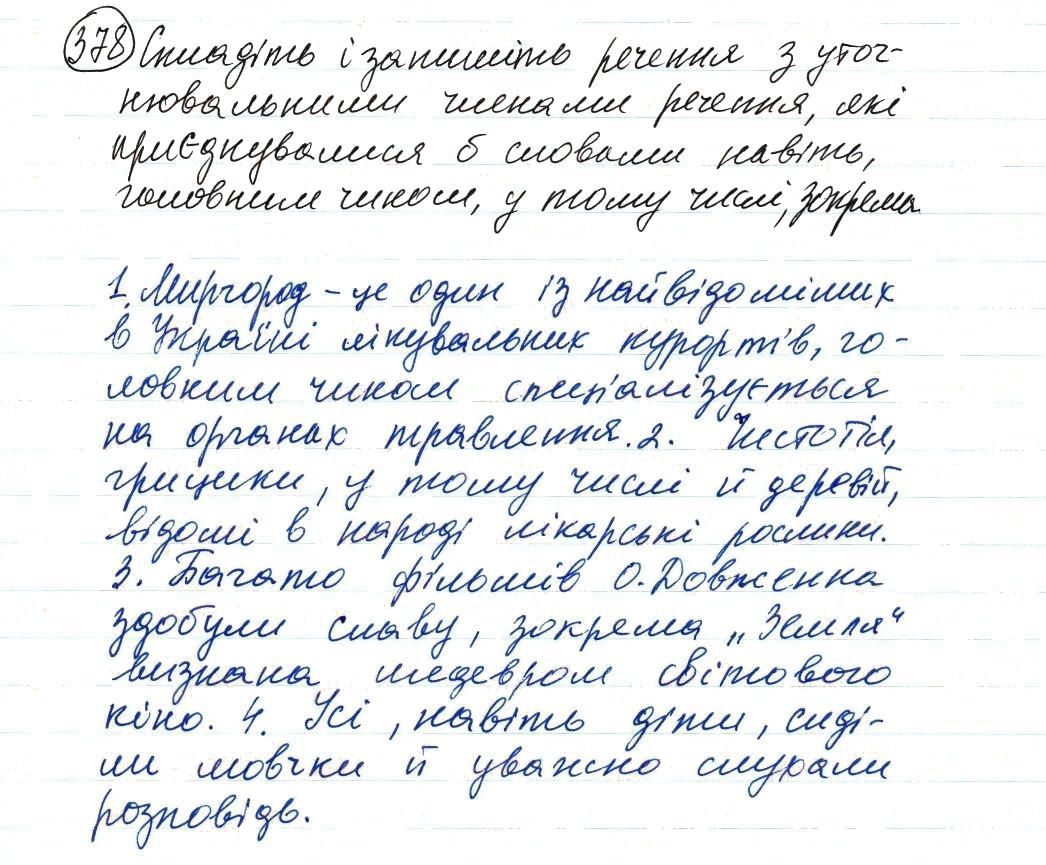 378 Складіть і запишіть речення з уточ-
нювальними членами речення, які
приєднувалися б словами навіть,
головним чином, у тому числі, зокрема
1. Миргород – це один із найвідоміших
в Україні лікувальних курортів, го-
ловним чином спеціалізується
на органах травлення. 2. Чистотіл,
грицики, у тому числі й деревій,
відомі в народі лікарські рослини.
3. Багато фільмів О. Довженка
здобули славу, зокрема „Земля“
визнана шедевром світового
кіно. 4. Усі, навіть діти, сиді-
ли мовчки й уважно слухали
розповідь.